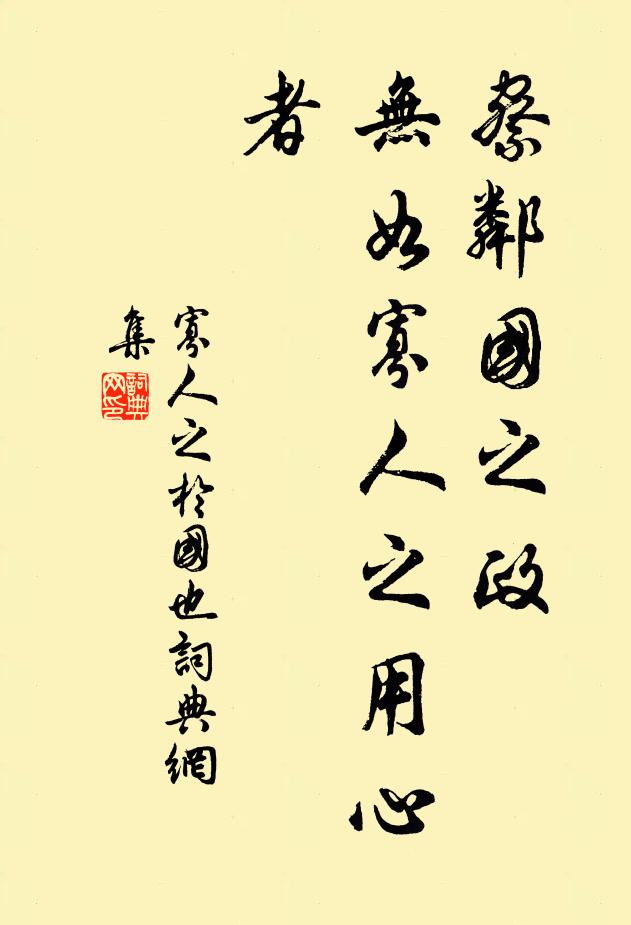 察鄰國之政
無如寡人之用心
者
寡人之於國也詞典網
集
詞典网印